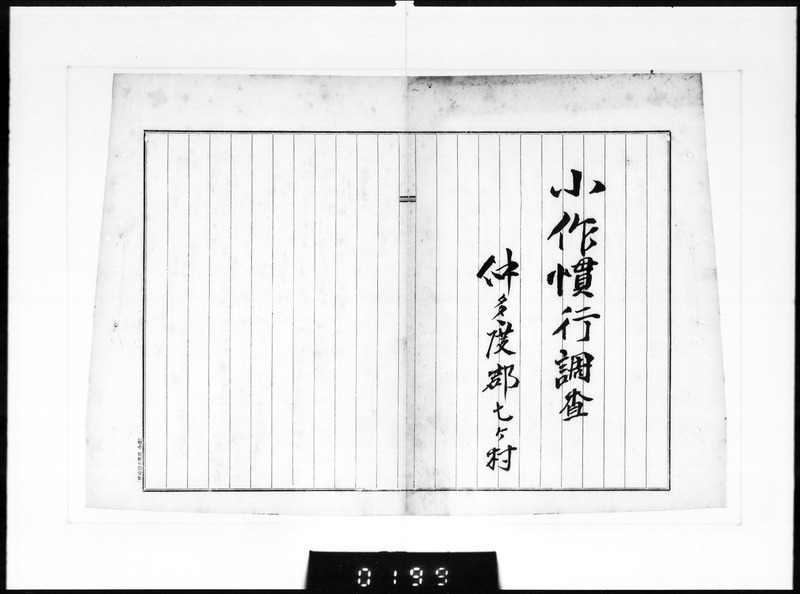 小作慣行調査
仲多度郡七ヶ村
0199